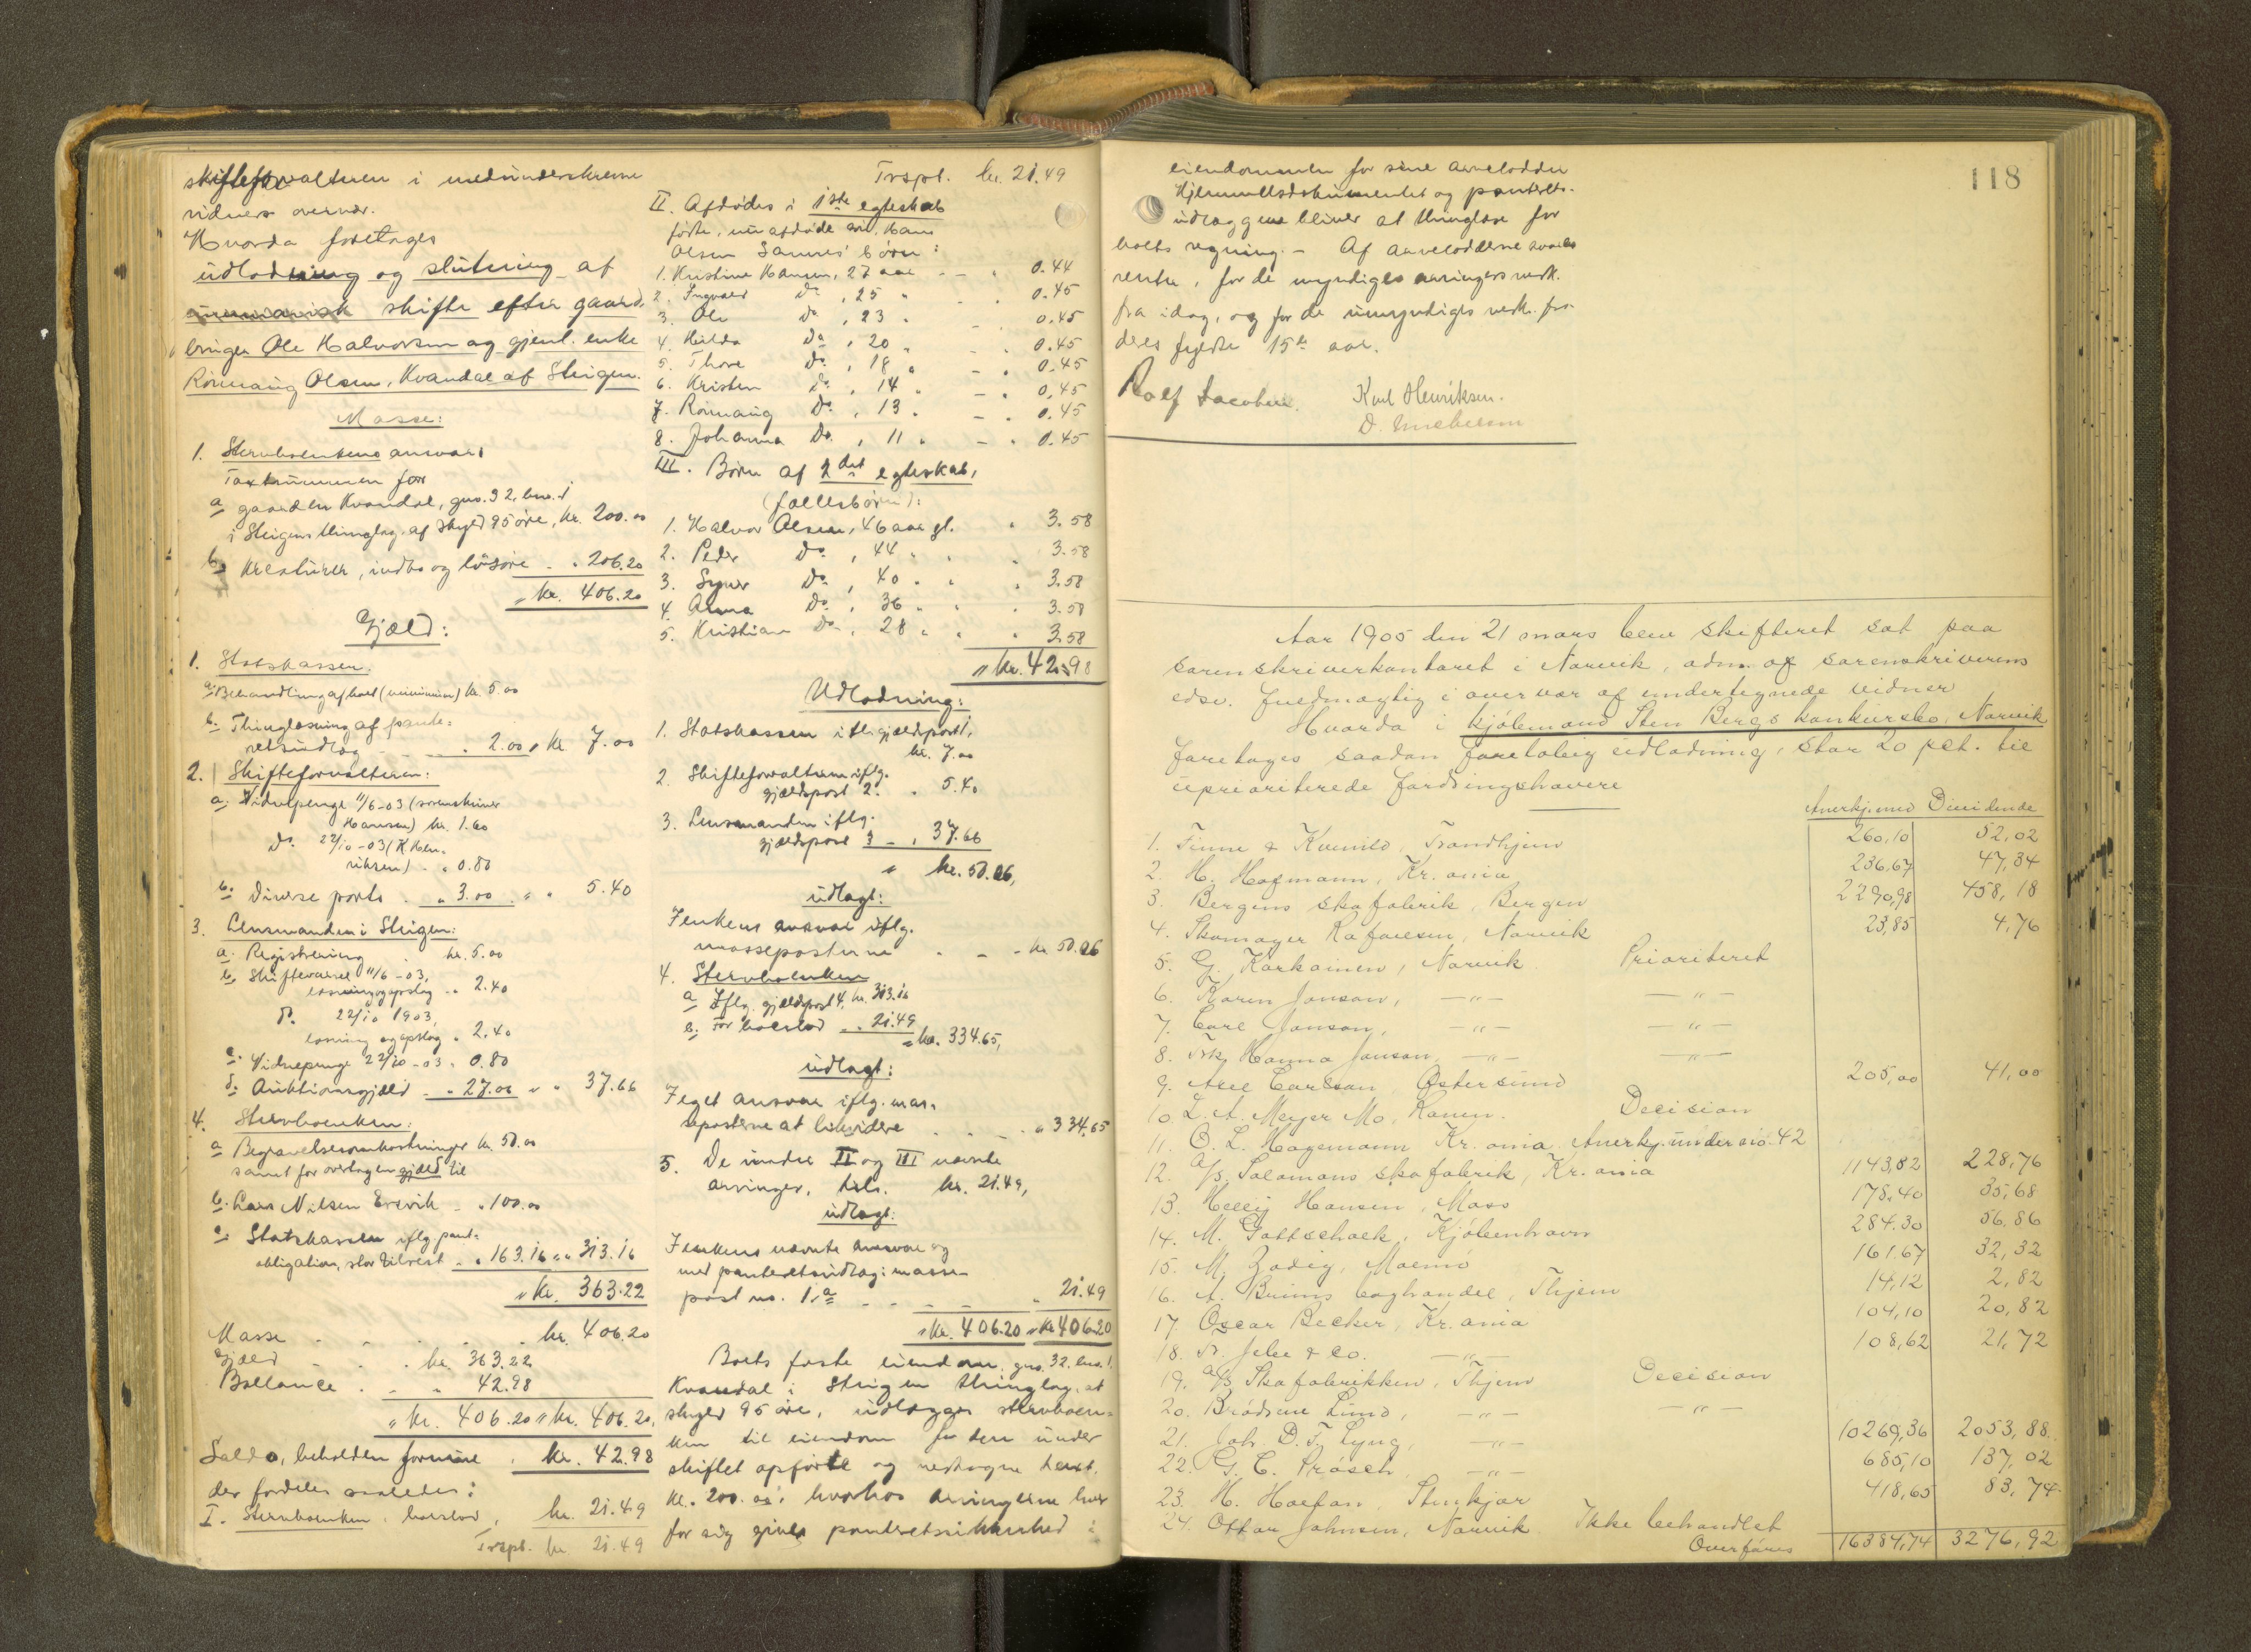 skifteforvalteren i medunderskrevne
vidners overvær.
Hvorda foretages
udlodning og slutning af
skifte efter gaard-
bruger Ole Halvorsen og gjenl. enke
Rønnaug Olsen, Kvandal af Steigen.
Masse:
1. Stervboenkens ansvar:
Taxtsummen for
a gaarden Kvandal, gno. 32, bno. 1
i Steigens thinglag, af skyld 95 øre, kr. 200.00
b. Kreaturer, indbo og løsøre - " 206.20
" kr. 406.20
Gjæld:
1. Statskassen.
a. Behandling af boet (minimum) kr. 5.00
b. Thinglæsning af pante-
retsudlæg - " 2.00 " kr. 7.00
2. Skifteforvalteren:
a. Vidnepenge 11/6-03 (sorenskriver
Hansen) kr. 1.60
Do. 22/10-03 (K. Hen-
riksen) - " 0.80
b. Diverse porto - " 3.00 " " 5.40
3. Lensmanden i Steigen:
a. Registrering kr. 5.00
b. Skiftevarsel 11/6-03,
løsning og opslag - " 2.40
Do. 22/10 1903,
løsning og opslag " 2.40
c. Vidnepenge 22/10-03 " 0.80
d. Auktionsgjæld - " 27.06 " " 37.66
4. Stervboenken:
a Begravelsesomkostninger kr. 50.00
samt for overtagen gjæld til
b. Lars Nilsen Ersvik - " 100.00
c. Statskassen iflg. pant-
obligation, stor tilrest - " 163.16 " " 313.16
" kr. 363.22
Masse - kr. 406.20
Gjæld - kr. 363.22
Ballance - " 42.98
" kr. 406.20 " kr. 406.20,
Saldo, beholden formue kr. 42.98
der fordeles saaledes:
I. Stervboenken, boeslod, kr. 21.49
Trspt. kr. 21.49
Trspt. kr. 21.49
II. Afdødes i 1ste egteskab
fødte, nu afdøde søn, Hans
Olsen Sannes' børn:
1. Kristine Hansen, 27 aar - " 0.44
2. Ingvald Do, 25 " - " 0.45
3. Ole Do, 23 " - " 0.45
4. Hilda Do, 20 " - " 0.45
5. Thore Do, 18 " - " 0.45
6. Kristen Do, 14 " - " 0.45
7. Rønnaug Do, 13 " - " 0.45
8. Johanna Do, 11 " - " 0.45
III. Børn af 2det egteskab,
(fællesbørn):
1. Halvor Olsen, 46 aar gl. " 3.58
2. Peder Do, 44 " " 3.58
3. Do, 40 " " 3.58
4. Anna Do, 36 " " 3.58
5. Kristian Do, 28 " " 3.58
" kr. 42.98
Udlodning:
1. Statskassen iflg. gjældspost 1,
kr. 7.00
2. Skifteforvalteren iflg.
gjældspost 2. " 5.40
3. Lensmanden iflg.
gjældspost 3 - " 37.66
" kr. 50.06,
udlagt:
I enkens ansvar iflg.
masseposterne - - kr. 50.06
4. Stervboenken
a Iflg. gjældspost 4, kr. 313.16
b. For boeslod - " 21.49
" kr. 334.65,
udlagt:
I eget ansvar iflg. mas-
seposterne at likvidere - " 334.65
5. De under II og III nævnte
arvinger, tils. kr. 21.49,
udlagt:
I enkens nævnte ansvar og
med panteretsudlæg i masse-
post no. 1, a - - - " 21.49
" kr. 406.20 " kr 406.20
Boets faste eiendom, gno. 32, bno. 1.
Kvandal i Steigen thinglag, af
skyld 95 øre, udlægges stervboen-
ken til eiendom for den under
skiftet opførte og vedtagne taxt.
kr. 200.00, hvorhos arvingerne hver
for sig gives panteretssikkerhed i
118
eiendommen for sine arvelodder
Hjemmelsdokumentet og panterets-
udlæggene bliver at thinglæse for
boets regning. - Af arvelodderne svares
rente, for de myndiges arvingers vedk.
fra idag, og for de umyndiges vedk. fra
deres fyldte 15de aar.
Rolf Jacobsen. Karl Henriksen.
Aar 1905 den 21 mars blev skifteret sat paa
sorenskriverkontoret i Narvik, adm. af sorenskriverens
edsv. fuldmægtig i overvær af undertegnede vidner
Hvorda i kjøbmand Sten Bergs konkursbo, Narvik
foretages saadan foreløbig udlodning, stor 20 pct. til
uprioriterede fordringshavere
Anerkj. med Dividende
1. Finne & Kvenild, Trondhjem 260,10 52,02
2. H. Hofmann, Kr.ania 236,67 47,34
3. Bergens skofabrik, Bergen 2290,98 458,18
4. Skomager Rafaelsen, Narvik 23,85 4,76
5. G. Karkainen, Narvik Prioriteret
6. Karen Jonson, —"— —"—
7. Carl Jonson, —"— —"—
8. Frk. Hanna Jonson, —"— —"—
9. Axel Carlson, Østersund 205,00 41,00
10. L. A. Meyer Mo, Ranen. Decision
11. O. L. Hagemann Kr.ania. Anerkj. under no. 42
12. A/s. Salomons skofabrik, Kr.ania 1143,82 228,76
13. Helly Hansen, Moss 178,40 35,68
14. M. Gottschalk, Kjøbenhavn 284.30 56.86
15. M. Zadig, Malmø 161,67 32,32
16. A. Bruns boghandel, Thjem 14,12 2,82
17. Oscar Becker, Kr.ania 104,10 20,82
18. Jebe & Co. —"— 108,62 21,72
19. A/s. Skofabrikken, Thjem Decision
20. Brødrene Lund, —"— —"—
21. Joh. D. F. Lyng, —"— 10269,36 2053,88
22. G. C. Prøsch, —"— 685,10 137,02
23. H. Stenkjær 418,65 83,74
24. Ottar Johnsen, Narvik Ikke behandlet
Overføres 16384,74 3276,92